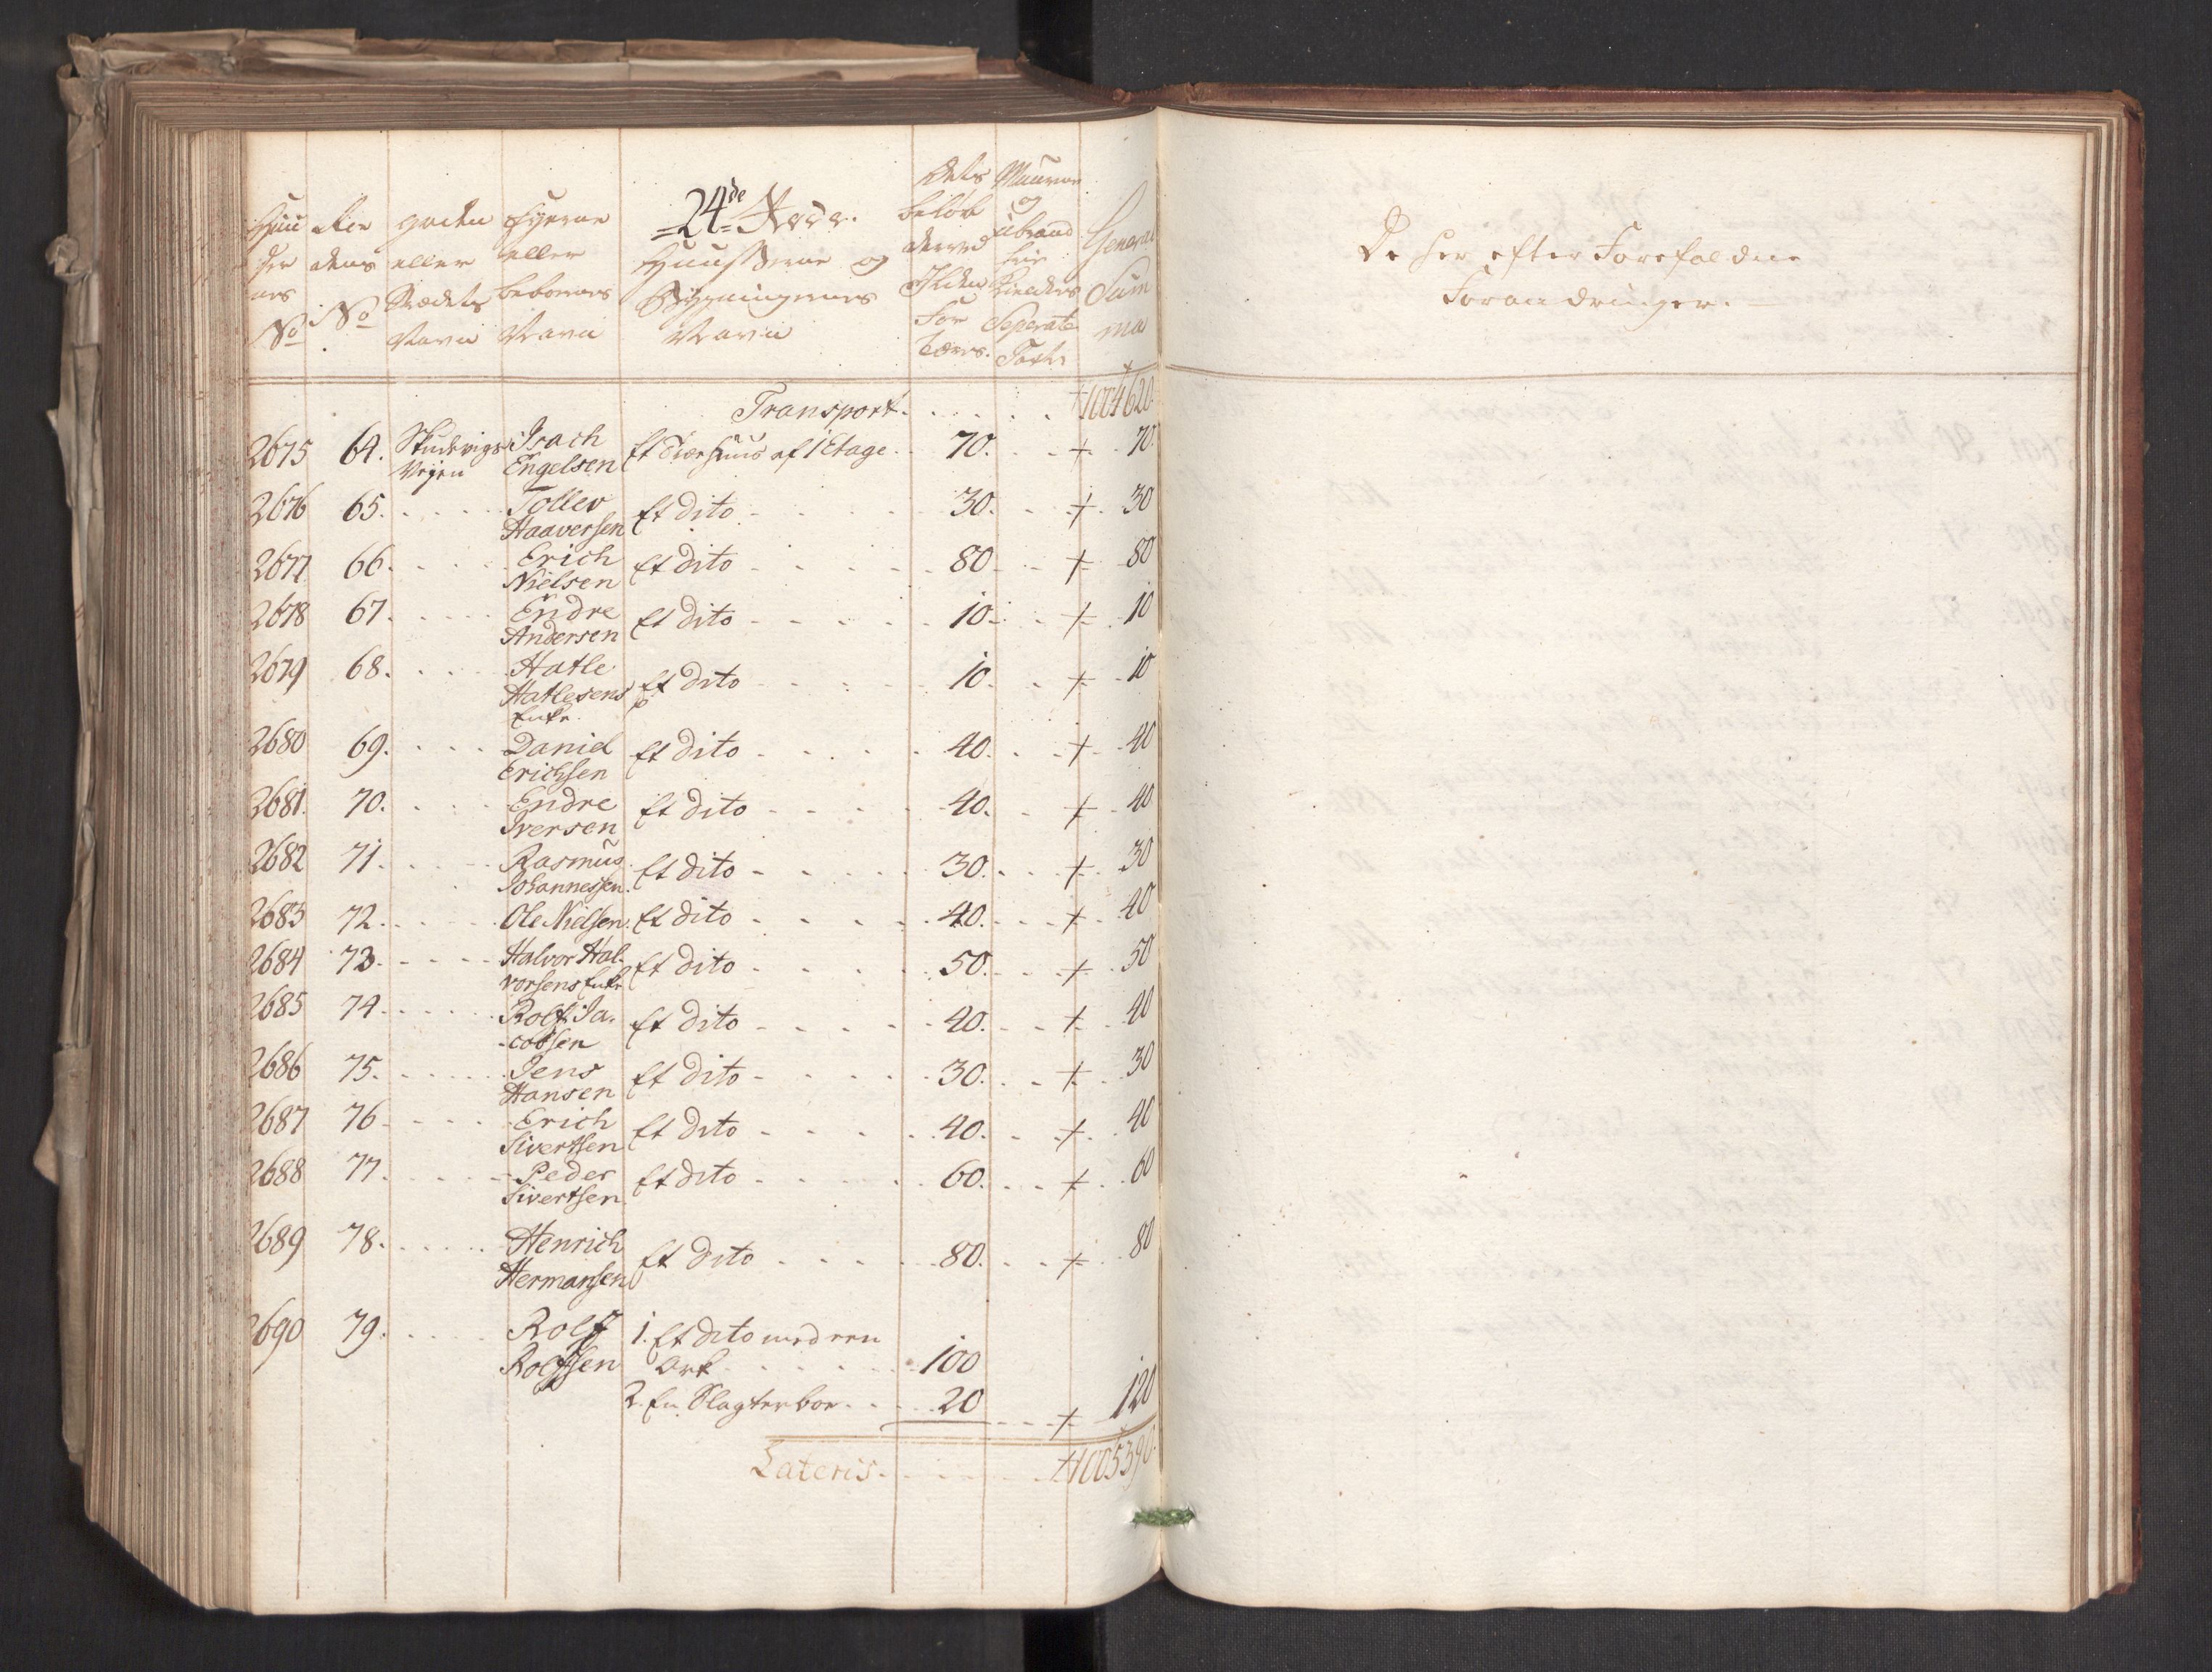 24de Rode.
Huu
ser
nes
No
Ro
dens
No
gaden
eller
Strædets
Navn
Eyerne
eller
beboernes
Navn
Huusserne og
Bygningernes
Navn
Dets
beløb
derved
Ilden
For
tæres.
Muurene
og
ubrand
Seperate
Taxt
General
Sum
ma
Transport. . . . . . 1004620.
2675 64. Studevigs Isach Et Træhuus af 1 Etage . 70. . . + . 70.
Vejen Engelsen
2676 65. . . . . Tollev Et dito . . . 30. . . + . 30
Haaversen
2677 66. . . . . Erich Et dito . . . 80 . . + . 80
Nielsen
2678 67. . . . . Endre Et dito . . . 10. . . + . 10
Andersen
2679 68. . . . . Hatle Et dito . . . 10. . . + . 10
Hatlesens
Enke.
2680 69. . . . . Daniel Et dito . . . 40. . . + . 40
Erichsen
2681. 70. . . . . Endre Et dito . . . 40. . . + . 40
Iversen
2682 71. . . . . Rasmus Et dito . . . 30. . . + . 30
Johannessen.
2683 72. . . . . Ole Nielsen. Et dito . . . 40. . . + . 40
2684 73. . . . . Halvor Hal- Et dito . . . 50. . . + . 50
vorsens Enke
2685 74. . . . . Rolf Ja- Et dito . . . 40. . . + . 40
-cobsen
2686 75. . . . . Jens Et dito . . . 30. . . + . 30
Hansen
2687 76. . . . . Erich Et dito . . . 40. . . + . 40
Sivertsen
2688 77. . . . . Peder Et dito . . . 60. . . + . 60
Sivertsen
2689 78. . . . . Henrich Et dito . . . 80. . . + . 80
Hermansen
2690 79. . . . . Rolf 1. Et dito med een
Rolfsen Ark . . . . . 100
2. En Slagterboe. . . 20 . . + 120
Lateris. . . . . . 1005390.
De her efter Forefaldne
Forandringer. —